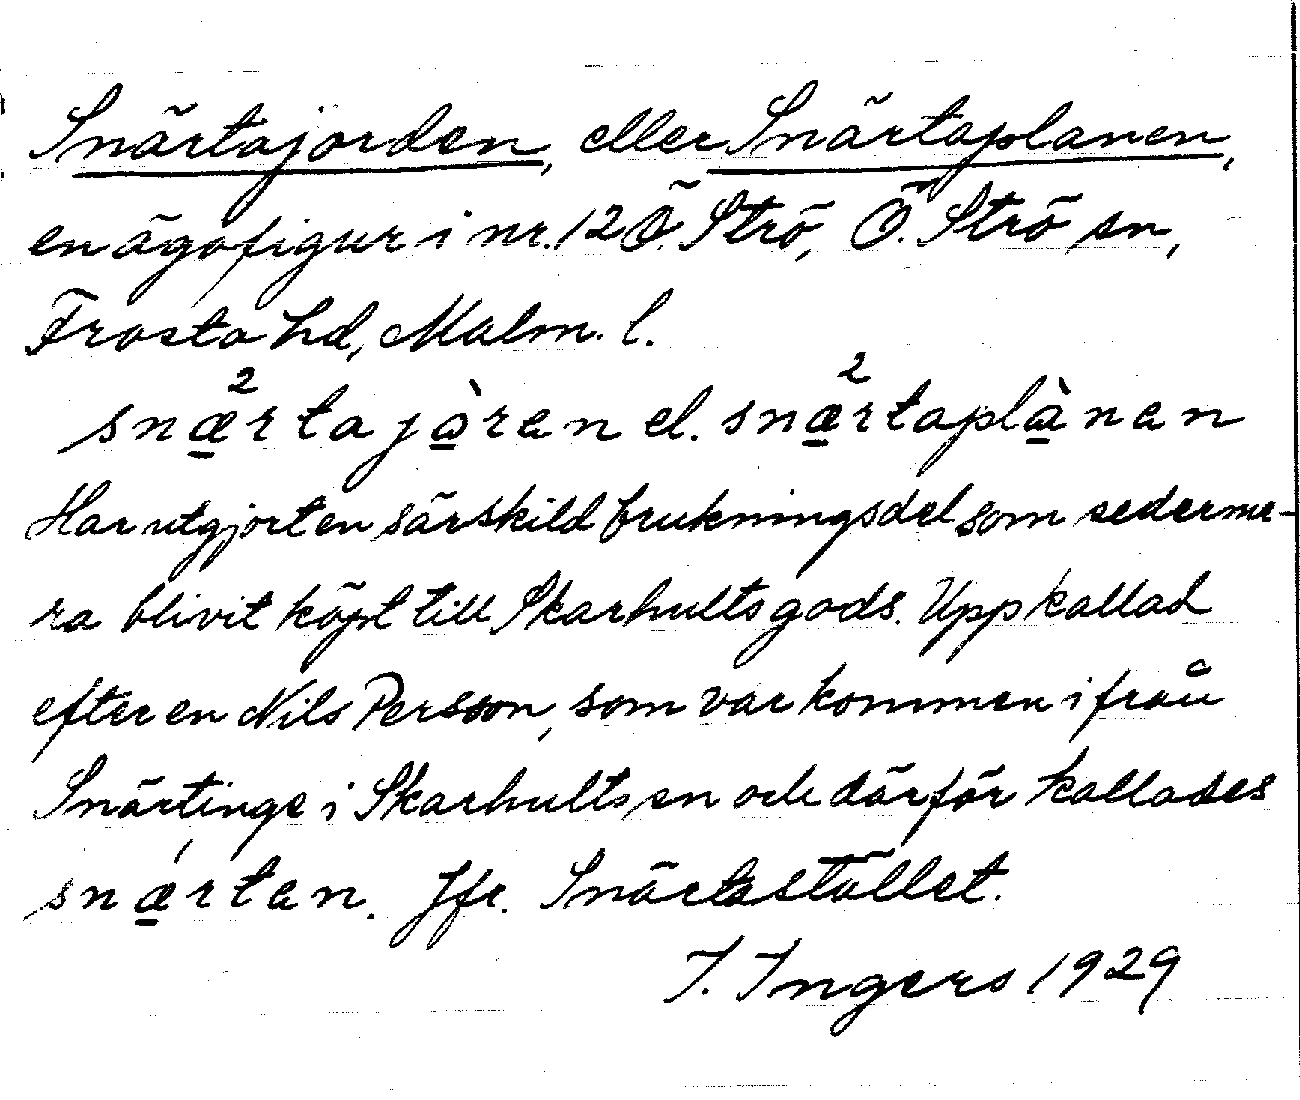 Snärtajorden, eller Snärtaplanen,
en ägofigur i nr. 12 Ö. Strö, Ö. Strö sn,
Frosta hd, Malm. l.
snæ̱²rtajɑ̱̀ren el. snæ̱²rtaplɑ̱̀nen
Har utgjort en särskild brukningsdel som sederme-
ra blivit köpt till Skarhults gods. Uppkallad
efter en Nils Persson, som var kommen ifrån
Snärtinge i Skarhults sn och därför kallades
snǽ̱rten. Jfr. Snärtastället.
I. Ingers 1929